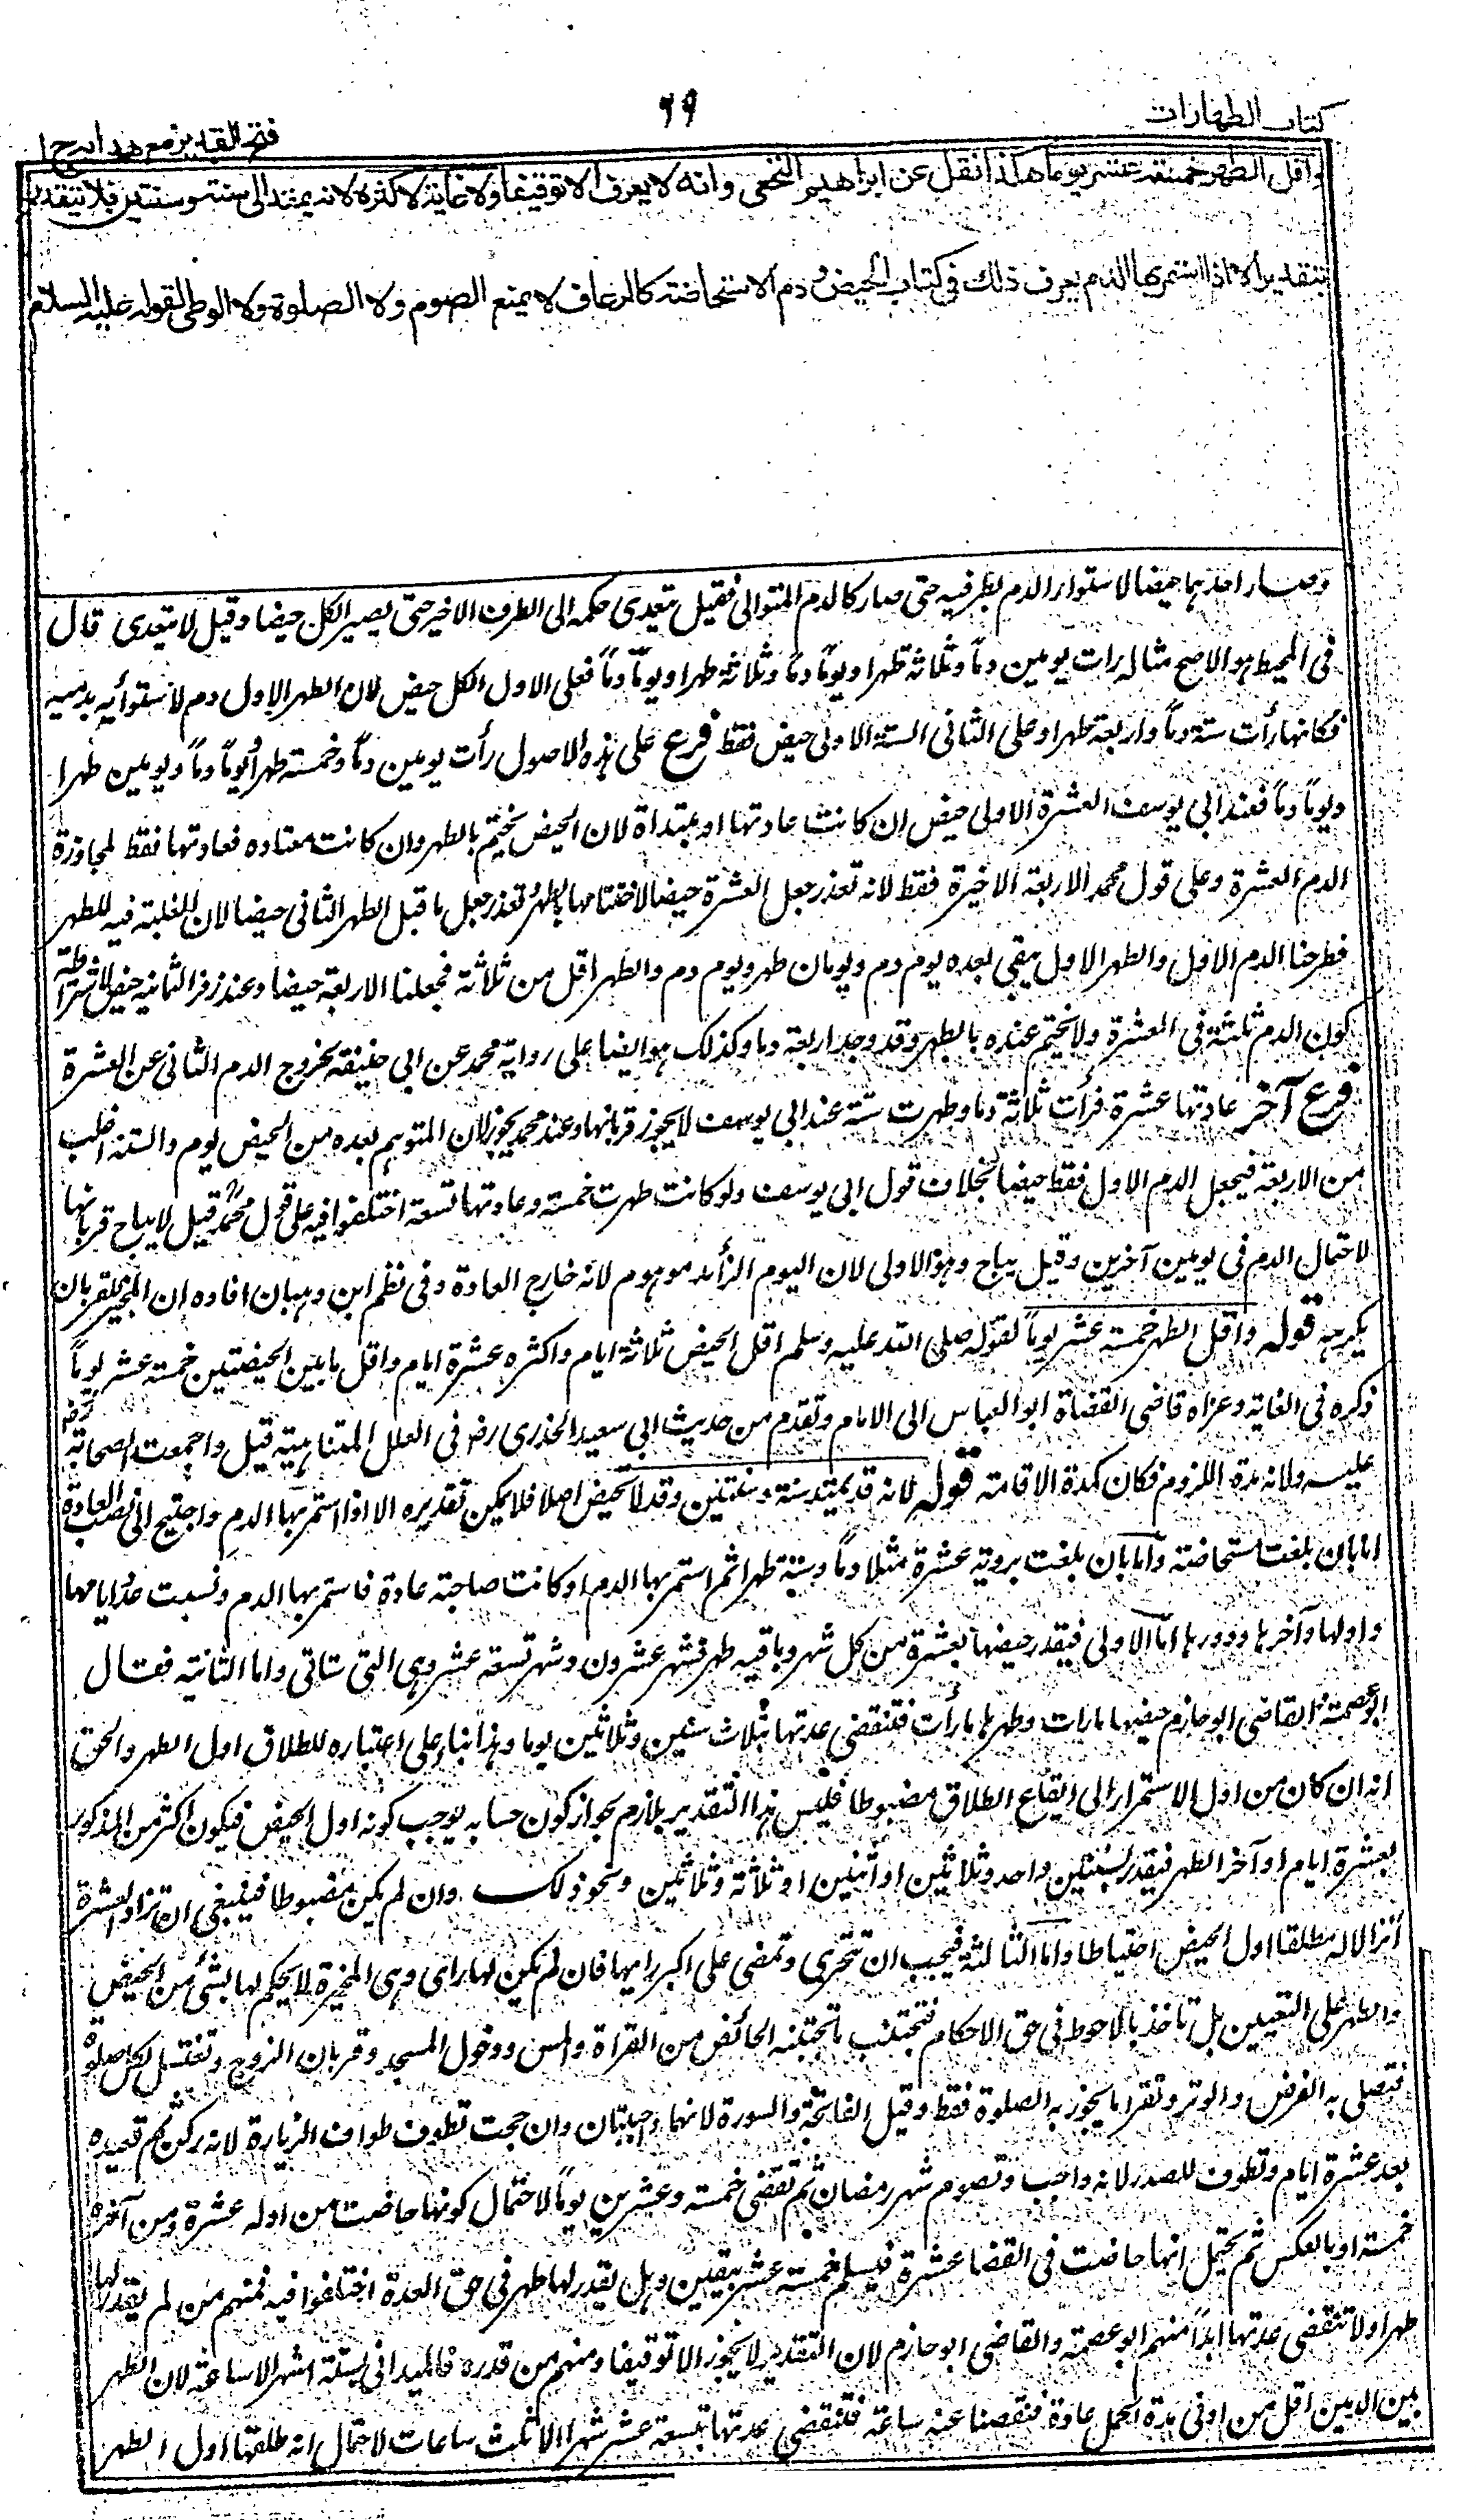 كتاب الطهارات
٦٩
فتح القدير مع هدايه ج ١
واقل الطهر خمسة عشر يوما هكذا نقل عن ابراهيم النخعي وانه لا يعرف الا توقيفا ولا غاية لاكثره لانه يمتد الى سنة وسنتين فلا يتقدر
بتقدير الا اذا استمر بها الدم يعرف ذلك في كتاب الحيض ودم الاستحاضة كالرعاف لا يمنع الصوم ولا الصلوة ولا الوطي لقوله عليه السلام
وصار احدهما حيضا لاستواء الدم بطرفيه حتى صار كالدم المتوالي فقيل يتعدى حكمه الى الطرف الاخير حتى يصير الكل حيضا وقيل لا يتعدى قال
في المحيط هو الاصح مثاله رات يومين دماً وثلاثة طهرا ويوماً دماً وثلاثة طهرا ويوماً دماً فعلى الاول الكل حيض لان الطهر الاول دم لاستوائه بدميه
فكانها رأت ستة دماً واربعة طهرا وعلى الثاني الستة الاولى حيض فقط فرع على هذه الاصول رأت يومين دماً وخمسة طهرا ويوماً دماً ويومين طهرا
ويوماً دماً فعند ابي يوسف العشرة الاولى حيض ان كانت عادتها او مبتدأة لان الحيض يختم بالطهر وان كانت معتاده فعادتها فقط لمجاوزة
الدم العشرة وعلى قول محمد الاربعة الاخيرة فقط لانه تعذر جعل العشرة حيضا لاختتامها بالطهر وتعذر جعل ما قبل الطهر الثاني حيضا لان الغلبة فيه للطهر
فطرحنا الدم الاول والطهر الاول يبقى بعده يوم دم ويومان طهر ويوم دم والطهر اقل من ثلاثة فجعلنا الاربعة حيضا وعند زفر الثمانية حيض لاشتراطه
كون الدم ثلثة في العشرة ولا يختم عنده بالطهر وقد وجد اربعة دما وكذلك هو ايضا على رواية محمد عن ابي حنيفة لخروج الدم الثاني عن العشرة
فرع آخر عادتها عشرة فرأت ثلاثة دما وطهرت ستة عند ابي يوسف لا يجوز قربانها وعند محمد يجوز لان المتوهم بعده من الحيض يوم والستة اغلب
من الاربعة فيجعل الدم الاول فقط حيضا بخلاف قول ابي يوسف ولو كانت طهرت خمسة وعادتها تسعة اختلفوا فيه على قول محمد قيل لا يباح قربانها
لاحتمال الدم في يومين آخرين وقيل يباح وهو الاولى لان اليوم الزائد موهوم لانه خارج العادة وفي نظم ابن وهبان افاده ان المجيز للقربان
يكرهه قوله واقل الطهر خمسة عشر يوماً لقوله صلى الله عليه وسلم اقل الحيض ثلاثة ايام واكثره عشرة ايام واقل ما بين الحيضتين خمسة عشر يوماً
ذكره في الغاية وعزاه قاضي القضاة ابو العباس الى الامام وتقدم من حديث ابي سعيد الخدري رضـ في العلل المتناهية قيل واجمعت الصحابة رضـ
عليه ولانه مدة اللزوم فكان كمدة الاقامة قوله لانه قد يمتد سنة وسنتين وقد لا تحيض اصلا فلا يمكن تقديره الا اذا استمر بها الدم واحتيج الى نصب العادة
اما بان بلغت مستحاضة واما بان بلغت برؤية عشرة مثلا دماً وستة طهرا ثم استمر بها الدم او كانت صاحبة عادة فاستمر بها الدم ونسيت عدد ايامها
واولها وآخرها ودورها اما الاولى فيقدر حيضها بعشرة من كل شهر وباقيه طهر فشهر عشرون وشهر تسعة عشر وهي التي ستاتي واما الثانية فقال
ابو عصمة والقاضي ابو حازم حيضها ما رات وطهرها ما رأت فتنقضي عدتها بثلاث سنين وثلاثين يوما وهذا بناء على اعتباره للطلاق اول الطهر والحق
انه ان كان من اول الاستمرار الى ايقاع الطلاق مضبوطا فليس هذا التقدير بلازم لجواز كون حسابه يوجب كونه اول الحيض فيكون اكثر من المذكور
بعشرة ايام او آخر الطهر فيقدر بسنتين واحد وثلاثين او اثنين او ثلاثة وثلاثين ونحو ذلك وان لم يكن مضبوطا فينبغي ان تزاد العشرة
انزالا له مطلقا اول الحيض احتياطا واما الثالثة فيجب ان تتحرى وتمضي على اكبر رايها فان لم يكن لها راى وهي المحيرة لا يحكم لها بشئ من الحيض
والطهر على التعيين بل تاخذ بالاحوط في حق الاحكام فتجتنب ما تجتنبه الحائض من القراة والمس ودخول المسجد وقربان الزوج وتغتسل لكل صلوة
فتصلي به الفرض والوتر وتقرا ما يجوز به الصلوة فقط وقيل الفاتحة والسورة لانهما واجبتان وان حجت تطوف طواف الزيارة لانه ركن ثم تعيده
بعد عشرة ايام وتطوف للصدر لانه واجب وتصوم شهر رمضان ثم تقضي خمسة وعشرين يوماً لاحتمال كونها حاضت من اوله عشرة ومن آخره
خمسة او بالعكس ثم يحتمل انها حاضت في القضا عشرة فيسلم خمسة عشر بيقين وهل يقدر لها طهر في حق العدة اختلفوا فيه فمنهم من لم يقدر لها
طهرا ولا تنقضي عدتها ابداً منهم ابو عصمة والقاضي ابو حازم لان التقدير لا يجوز الا توقيفا ومنهم من قدره فالميداني بستة اشهر الا ساعة لان الطهر
بين الدمين اقل من ادنى مدة الحمل عادة فنقصنا عنه ساعة فتنقضي عدتها بتسعة عشر شهرا الا ثلث ساعات لاحتمال انه طلقها اول الطهر